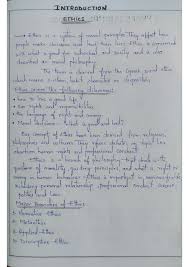 INTRODUCTION
ETHICS
Ethics is a system of moral principles. They affect how
people make decisions and lead their lives. Ethics is concerned
with what is good for individuals and society and is also
described as moral philosophy.
The term is derived from the Greek word ethos
which means custom, habit, character or disposition.
Ethics covers the following dilemmas:
how to live a good life?
our rights and responsibilities
the language of right and wrong
moral decisions - what is good and bad?
Our concept of ethics have been derived from religions,
philosophies and cultures. They infuse debates on topics like
abortion, human rights and professional conduct.
Ethics is a branch of philosophy that deals with
questions of morality,
human behaviour.
including personal relationships, professional conduct,
politics and law.
Major Branches of Ethics:
Normative Ethics
Metaethics
Applied Ethics
Descriptive Ethics